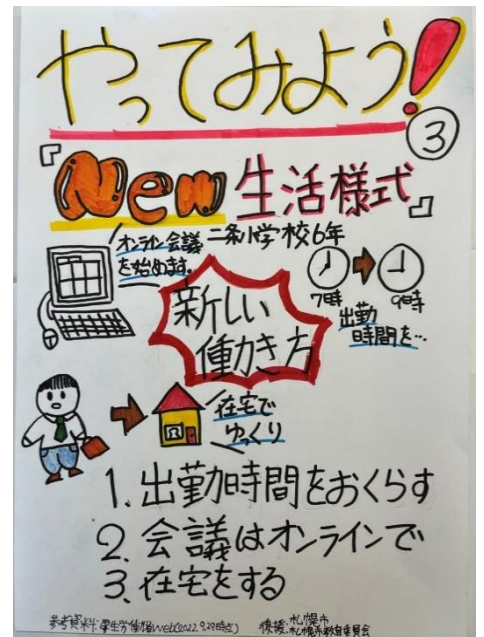 やってみよう!
③
『New生活様式』
二条小学校6年
オンライン会議
を始めます。
7時
9時
出勤
時間を…
新しい
働き方
在宅で
ゆっくり
1. 出勤時間をおくらす
2. 会議はオンラインで
3. 在宅をする
参考資料:厚生労働省web(2022.9.29時点)
後援:札幌市
札幌市教育委員会